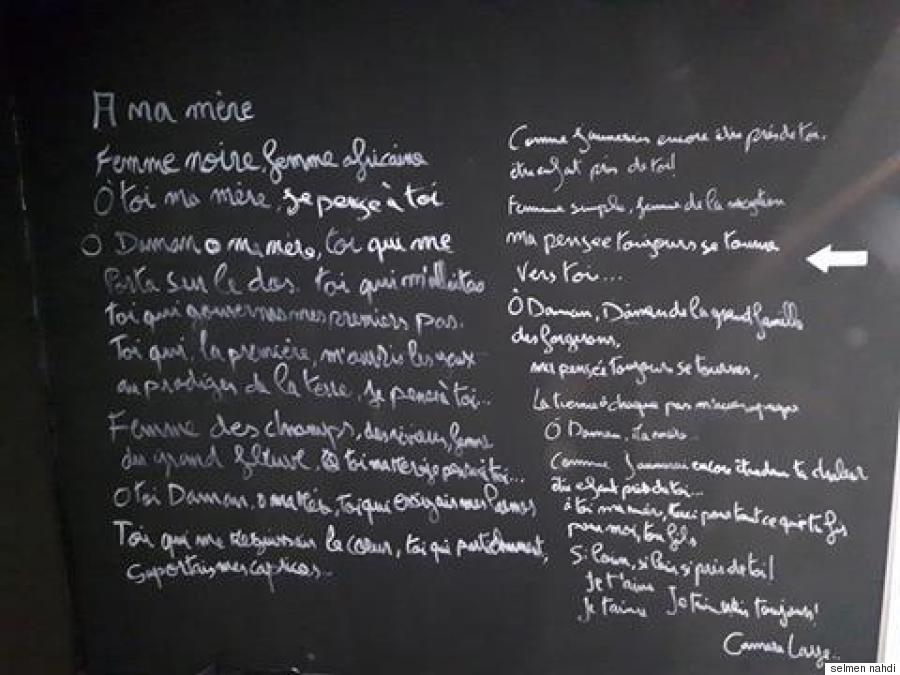 A ma mère
Femme noire, femme africaine
Ô toi ma mère, je pense à toi
O Daman o ma mère, toi qui me
Porta sur le dos. toi qui m'allaitas
toi qui gouvernas mes premiers pas.
Toi qui, la première, m'ouvris les yeux
au prodiges de la terre, je pense à toi...
Femme des champs, des rivières, femme
du grand fleuve, Ô toi ma mère je pense à toi...
O toi Daman, o ma mère, Toi qui essuyais mes larmes
Toi qui me réjouissais le cœur, toi qui patiemment,
Supportais mes caprices...
Comme j'aimerais encore être près de toi.
être enfant près de toi!
Femme simple, femme de la
ma pensée toujours se tourne
vers toi...
Ô Daman, Daman de la grand famille
des forgerons,
ma pensée toujours se tourne,
La tienne à chaque pas m'accompagne
Ô Daman, ma mère
Comme j'aimerai encore être dans ta chaleur
être enfant près de toi...
à toi ma mère, merci pour tout ce que tu fis
pour moi, ton fils
Si loin, si loin si près de toi!
Je t'aime
Je t'aime toujours!
Camara Laye..
selmen nahdi